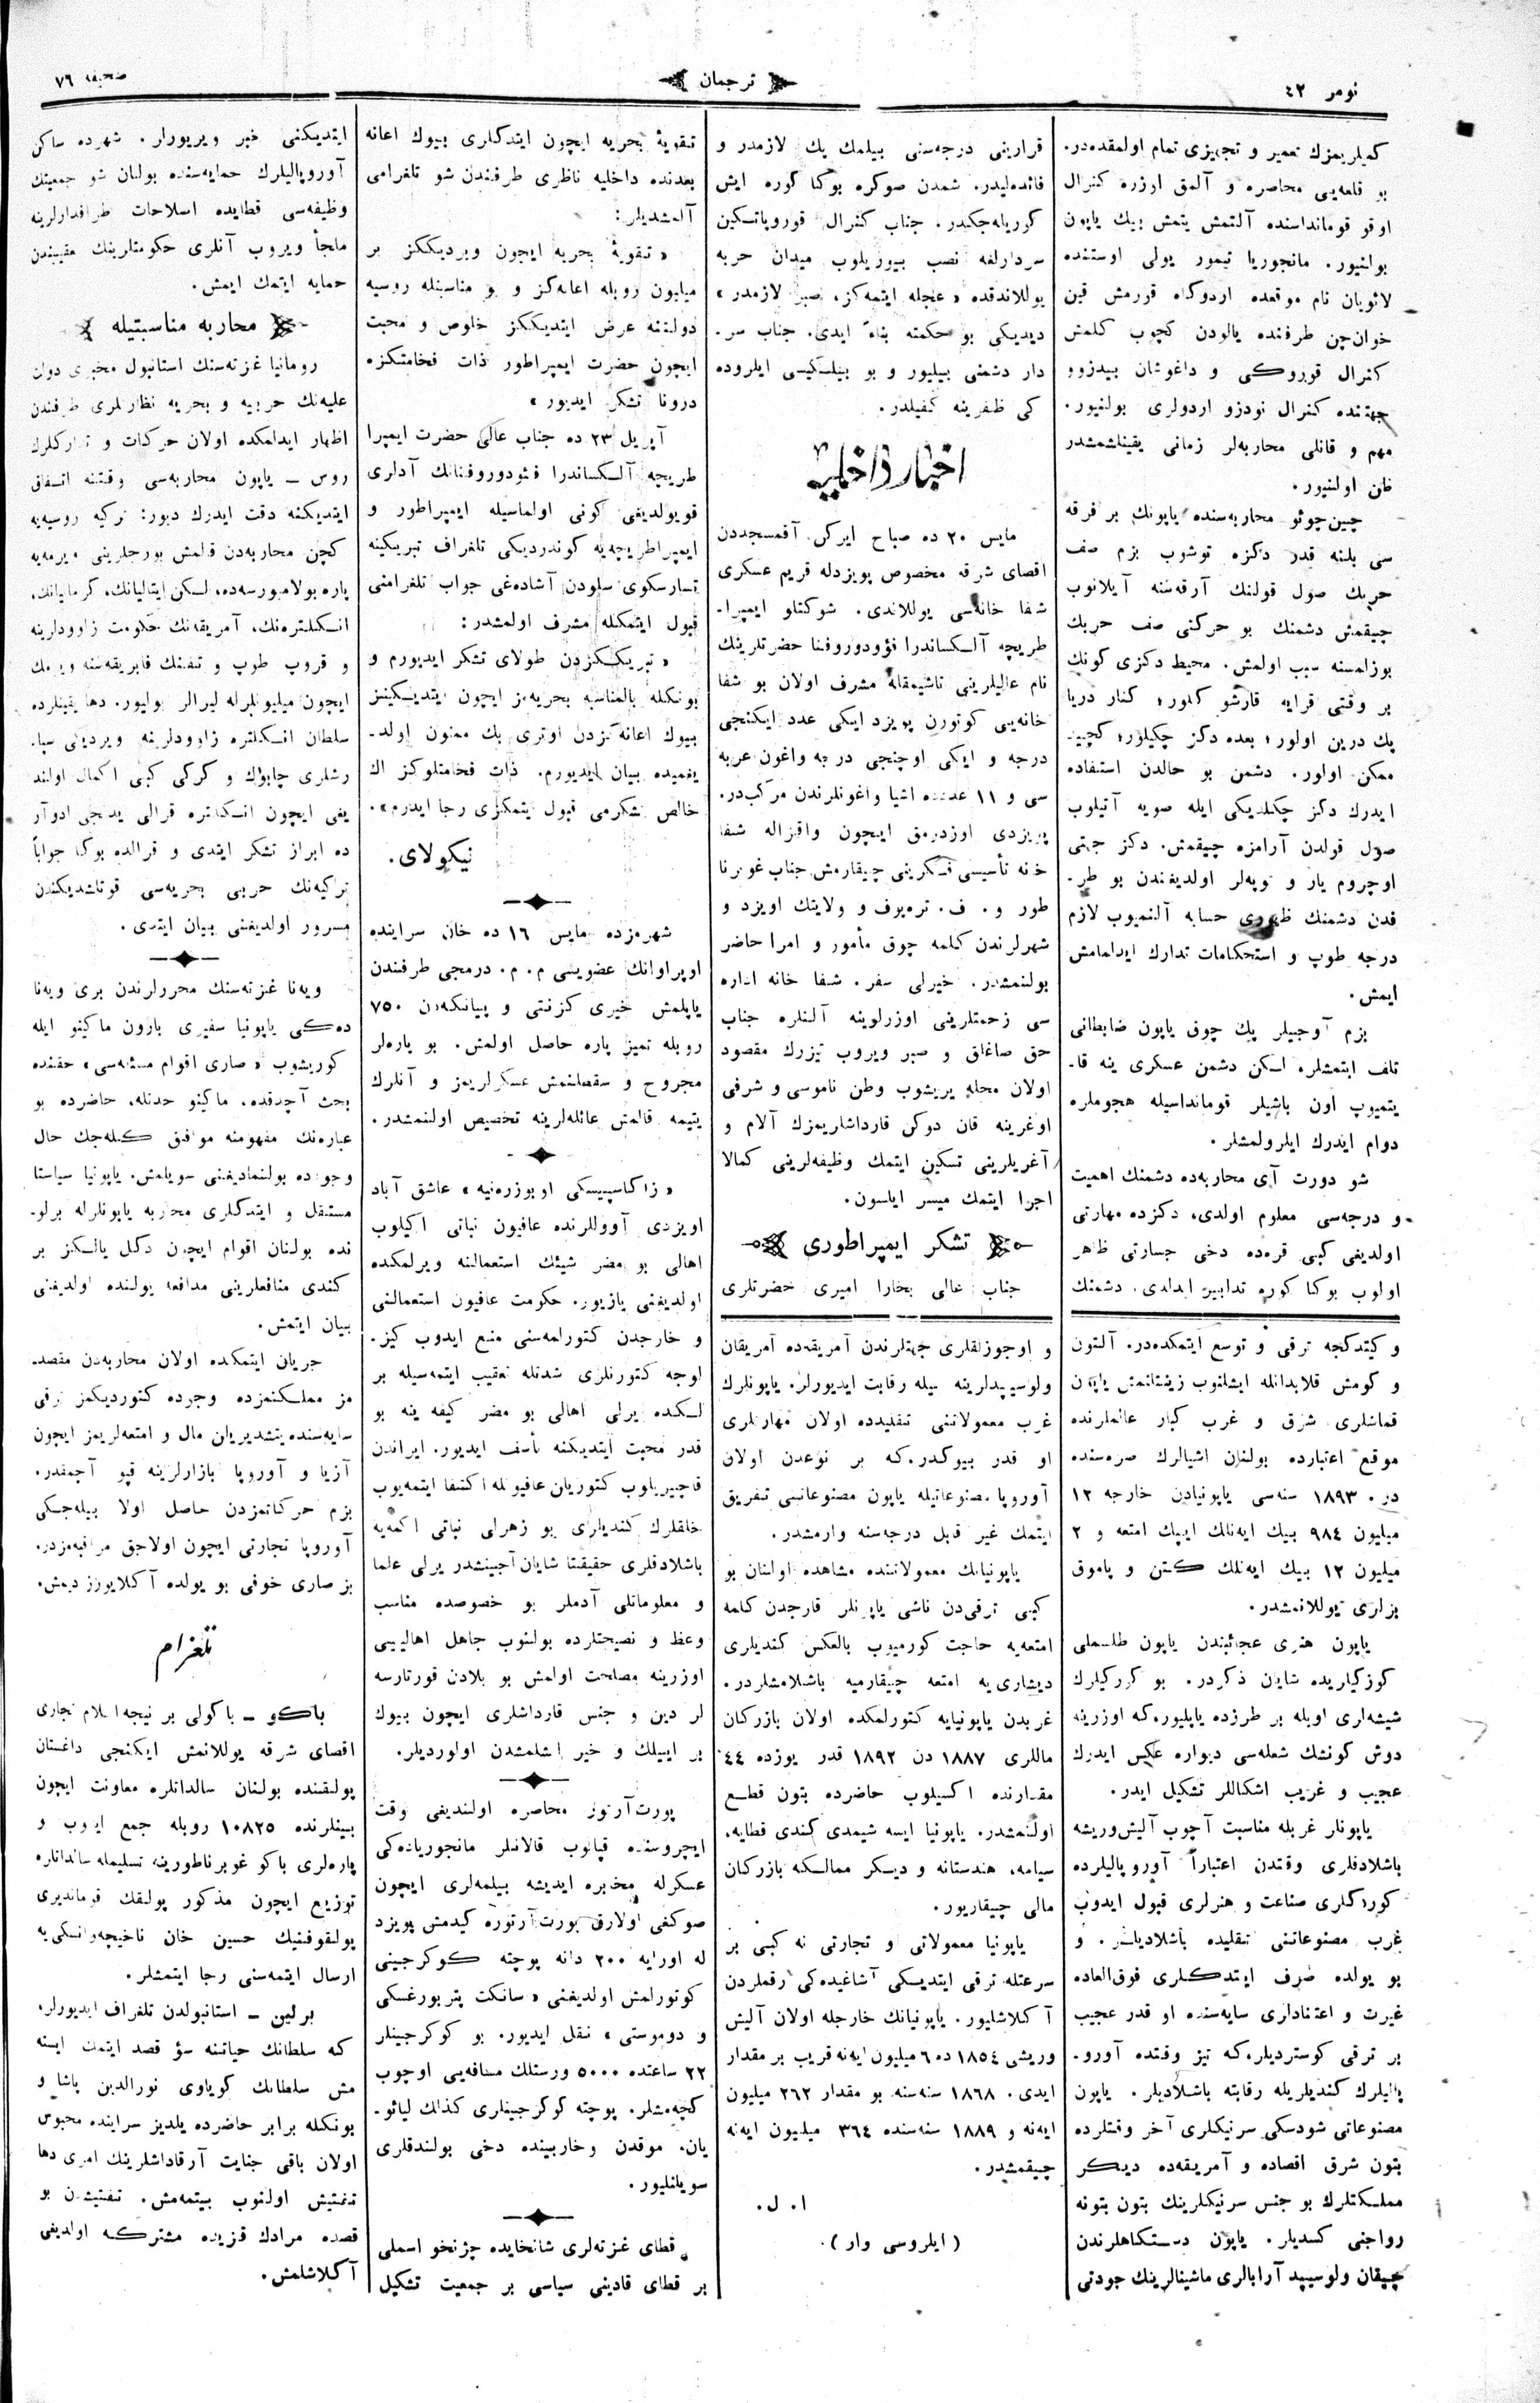 نومر ٤٢
ترجمان
صحیفه ٧٦
كمیلریمزك تعمیر و تجهیزی تمام اولمقده‌در.
بو قلعه‌یی محاصره و آلمق اوزره كنرال
اوقو قوماند‌اسنده آلتمش یتمش بیك یاپون
بولنیور. مانجوریا تیمور یولی اوستنده
لائویان نام موقعده اردوگاه قورمش قین
خوان‌چن طرفنده یالودن كچوب كلمش
كنرال قوروكی و داغوشان بیدزوو
جهتنده كنرال نودزو اردولری بولنیور.
مهم و قانلی محاربه‌لر زمانی یقینلشمشدر
ظن اولنیور.
چین‌چوئو محاربه‌سنده یاپونك بر فرقه
سی بلنه قدر دكزه توشوب بزم صف
حربك صول قولنك آرقه‌سنه آیلانوب
چیقمش دشمنك بو حركتی صف حربك
بوزلمسنه سبب اولمش. محیط دكزی كونك
بر وقتی قرایه قارشو كلور؛ كنار دریا
پك درین اولور؛ بعده دكز چكیلور؛ كچمه
ممكن اولور. دشمن بو حالدن استفاده
ایدرك دكز چكلدیكی ایله صویه آتیلوب
صول قولدن آرامزه چیقمش. دكز جهتی
اوچروم یار و توپه‌لر اولدیغندن بو طر-
فدن دشمنك ظهوری حسابه آلنمیوب لازم
درجه طوپ و استحكامات تدارك ایدلمامش
ایمش.
بزم آوجیلر پك چوق یاپون ضابطانی
تلف ایتمشلره لكن دشمن عسكری ینه قا-
یتمیوب اون باشیلر قوماند‌اسیله هجوملره
دوام ایدرك ایلرولمشلر.
شو دورت آی محاربه‌ده دشمنك اهمیت
و درجه‌سی معلوم اولدی، دكزده مهارتی
اولدیغی كبی قره‌ده دخی جسارتی ظاهر
اولوب بوكا كوره تدابیر ایدلدی. دشمنك
قرارینی درجه‌سنی بیلمك پك لازمدر و
فائده‌لیدر. شمدن صوكره بوكا كوره ایش
كوریله‌جكدر. جناب كنرال قوروپاتسكین
سردارلغه نصب بیوریلوب میدان حربه
یوللاندقده « عجله ایتمه‌كز، صبر لازمدر »
دیدیكی بو حكمته بناءً ایدی. جناب سر-
دار دشمنی بیلیور و بو بیلسكیسی ایلروده
كی ظفرینه كفیلدر.
اخبار داخلیه
مایس ٢٠ ده صباح ایركن آقمسجددن
اقصای شرقه مخصوص پویزدله قریم عسكری
شفا خانه‌سی یوللاندی. شوكتلو ایمپرا-
طریچه آلكساندرا فؤودوروفنا حضرتلرینك
نام عالیلرینی تاشیمقله مشرف اولان بو شفا
خانه‌یی كوتورن پویزد ایكی عدد ایكنجی
درجه و ایكی اوچنجی درجه واغون عربه
سی و ١١ عدده اشیا واغونلرندن مركب‌در.
پویزدی اوزدرمق ایچون واقزاله شفا
خانه تأسیسی فكرینی چیقارمش جناب غوبرنا
طور و. ف. تره‌پوف و ولایتك اویزد و
شهرلرندن كلمه چوق مأمور و امرا حاضر
بولنمشدر. خیرلی سفر. شفا خانه اداره
سی زحمتلرینی اوزرلرینه آلنلره جناب
حق صاغلق و صبر ویروب تیزرك مقصود
اولان محله یریشوب وطن ناموسی و شرفی
اوغرینه قان دوكن قارداشلریمزك آلام و
آغریلرینی تسكین ایتمك وظیفه‌لرینی كمالا
اجرا ایتمك میسر ایلسون.
تشكر ایمپراطوری
جناب عالی بخارا امیری حضرتلری
تقویهٔ بحریه ایچون ایتدكلری بیوك اعانه
بعدنده داخلیه ناظری طرفندن شو تلغرامی
آلمشدیلر:
« تقویهٔ بحریه ایچون ویردیككز بر
میلیون روبله اعانه‌كز و بو مناسبتله روسیه
دولتنه عرض ایتدیككز خلوص و محبت
ایچون حضرت ایمپراطور ذات فخامتكزه
درونا تشكر ایدیور »
آپریل ٢٣ ده جناب عالی حضرت ایمپرا
طریچه آلكساندرا فئودوروفنانك آدلری
قویولدیغی كونی اولماسیله ایمپراطور و
ایمپراطریچه‌یه كوندردیكی تلغراف تبریكینه
تسارسكوی سلودن آشاده‌غی جواب تلغرامنی
قبول ایتمكله مشرف اولمشدر:
« تبریككزدن طولای تشكر ایدیورم و
بونكله بالمناسبه بحریه‌مز ایچون ایتدیكیز
بیوك اعانه‌كزدن اوتری پك ممنون اولد-
یغمیده بیان ایدیورم. ذات فخامتلوكز اك
خالص تشكرمی قبول ایتمكزی رجا ایدرم ».
نیكولای.
شهرمزده مایس ١٦ ده خان سراینده
اوپراوانك عضویسی م. م. درمجی طرفندن
یاپلمش خیری كزنتی و پیانكه‌دن ٧٥٠
روبله تمیز پاره حاصل اولمش. بو پاره‌لر
مجروح و سقطلنمش عسكرلریمز و آنلرك
یتیمه قالمش عائله‌لرینه تخصیص اولنمشدر.
« زاكاسپیسكی اوبوزره‌نیه » عاشق آباد
اویزدی آووللرنده عافیون نباتی اكیلوب
اهالی بو مضر شیئك استعمالنه ویرلمكده
اولدیغنی یازیور. حكومت عافیون استعمالنی
و خارجدن كتورلمه‌سنی منع ایدوب كیز-
لوجه كتورنلری شدتله تعقیب ایتمه‌سیله بر
لكده یرلی اهالی بو مضر كیفه ینه بو
قدر محبت ایتدیكنه تأسف ایدیور. ایراندن
قاچیریلوب كتوریان عافیونله اكتفا ایتمه‌یوب
خلقلرك كندیلری بو زهرلی نباتی اكمه‌یه
باشلادقلری حقیقتا شایان آجینشدر یرلی علما
و معلوماتلی آدملر بو خصوصده مناسب
وعظ و نصیحتلرده بولنوب جاهل اهالییی
اوزرینه مصلحت اولمش بو بلادن قورتارسه
لر دین و جنس قارداشلری ایچون بیوك
بر ایییلك و خیر اشلمشدن اولوردیلر.
پورت‌آرتور محاصره اولندیغی وقت
ایچروسنده قپانوب قالانلر مانجوریاده‌كی
عسكرله مخبره ایدیشه بیلمه‌لری ایچون
صوكغی اولارق پورت‌آرتوره كیدمش پویزد
له اورایه ٢٠٠ دانه پوچته كوكرجینی
كوتورلمش اولدیغنی « سانكت پتربورغسكی
و دوموستی » نقل ایدیور. بو كوكرجینلر
٢٢ ساعتده ٥٠٠٠ ورستلك مسافه‌یی اوچوب
كچه‌مشلر. پوچته كوكرجینلری كذلك لیائو-
یان، موقدن و خاربینده دخی بولندقلری
سویلنلیور.
قطای غزته‌لری شانخایده چژنخو اسملی
بر قطای قادینی سیاسی بر جمعیت تشكیل
ایتدیكنی خبر ویریورلر. شهرده ساكن
آوروپالیلرك حمایه‌سنده بولنان شو جمعیتك
وظیفه‌سی قطایده اسلاحات طرفدارلرینه
ملجأ ویروب آنلری حكومتلرینك عقیبندن
حمایه ایتمك ایمش.
محاربه مناسبتیله
رومانیا غزته‌سنك استانبول مخبری دولت
علیه‌نك حربیه و بحریه نظارتلری طرفندن
اظهار ایدلمكده اولان حركات و تداركلرك
روس — یاپون محاربه‌سی وقتنه اتفاق
ایتدیكنه دقت ایدرك دیور: تركیه روسیه‌یه
كچن محاربه‌دن قالمش بورجلرینی ویرمه‌یه
پاره بولامیورسه‌ده، لكن ایتالیانك، كرمانیانك،
انكلتره‌نك، آمریقه‌نك حكومت زاوودلرینه
و قروپ طوپ و تفنك فابریقه‌سنه ویرمك
ایچون میلیونلرله لیرالر بولیور. دها یقینلرده
سلطان انكلتره زاوودلرینه ویردیكی سپا-
رشلری چاپوك و كركی كبی اكمال اولند
یغی ایچون انكلتره قرالی یدنجی ادوآر
ده ابراز تشكر ایتدی و قرالده بوكا جواباً
تركیه‌نك حربی بحریه‌سی قوتلشدیكندن
مسرور اولدیغنی بیان ایتدی.
ویه‌نا غزته‌سنك محررلرندن بری ویه‌نا
ده‌كی یاپونیا سفیری بارون ماكینو ایله
كوریشوب « صاری اقوام مسئله‌سی » حقنده
بحث آچدقده، ماكینو حدتله، حاضرده بو
عباره‌نك مفهومنه موافق كله‌جك حال
وجوده بولنمادیغنی سویلمش. یاپونیا سیاستا
مستقل و ایتدكلری محاربه یاپونلرله برلو-
نده بولنان اقوام ایچون دكل یالكز بر
كندی منافعلرینی مدافعه یولنده اولدیغنی
بیان ایتمش.
جریان ایتمكده اولان محاربه‌دن مقصد-
مز مملكتمزده وجوده كتوردیكمز ترقی
سایه‌سنده یتشدیریلن مال و امتعه‌لریمز ایچون
آزیا و آوروپا بازارلرینه قپو آچمقدر.
بزم حركاتمزدن حاصل اولا بیله‌جكی
آوروپا تجارتی ایچون اولاجق مراقبه‌مزدر.
بز صاری خوفی بو یولده آكلایورز دیمش.
تلغرام
باكو — باكولی بر نیجه اسلام تجاری
اقصای شرقه یوللانمش ایكنجی داغستان
پولقنده بولنان سالداتلره معاونت ایچون
بینلرنده ١٠٨٢٥ روبله جمع ایدوب و
پاره‌لری باكو غوبرناطورینه تسلیمله سالداتلره
توزیع ایچون مذكور پولقك قوماندیری
پولقوفنیك حسین خان ناخیچه‌وانسكی‌یه
ارسال ایتمه‌سنی رجا ایتمشلر.
برلین — استانبولدن تلغراف ایدیورلر،
كه سلطانك حیاتنه سؤ قصد ایتمك ایسته
مش سلطانك كویاوی نورالدین پاشا و
بونكله برابر حاضرده یلدیز سراینده محبوس
اولان باقی جنایت آرقاداشلرینك امری دها
تفتیش اولنوب بیتمه‌مش. تفتیشدن بو
قصده مرادك قزیده مشتركه اولدیغی
آكلاشلمش.
و كیتدكجه ترقی و توسع ایتمكده‌در. آلتون
و كومش قلابدانله ایشلنوب زینتلنمش یاپون
قماشلری شرق و غرب كبار عائله‌لرنده
موقع اعتبارده بولنان اشیالرك صره‌سنده
در. ١٨٩٣ سنه‌سی یاپونیادن خارجه ١٢
میلیون ٩٨٤ بیك ایه‌نلك ایپك امتعه و ٢
میلیون ١٢ بیك ایه‌نلك كتن و پاموق
بزلری یوللانمشدر.
یاپون هنری عجائبندن یاپون طلسملی
كوزكیلریده شایان ذكردر. بو كوزكیلرك
شیشه‌لری اویله بر طرزده یاپلیور،كه اوزرینه
دوش كونشك شعله‌سی دیواره عكس ایدرك
عجیب و غریب اشكاللر تشكیل ایدر.
یاپونلر غربله مناسبت آچوب آلیش‌وریشه
باشلادقلری وقتدن اعتباراً آوروپالیلرده
كوردكلری صناعت و هنرلری قبول ایدوب
غرب مصنوعاتنی تقلیده باشلادیلر. و
بو یولده صرف ایتدكلری فوق‌العاده
غیرت و اعتنادلری سایه‌سنده او قدر عجیب
بر ترقی كوستردیلر،كه تیز وقتده آورو-
پالیلرك كندیلریله رقابته باشلادیلر. یاپون
مصنوعاتی شودسكی سرنیكلری آخر وقتلرده
بتون شرق اقصاده و آمریقه‌ده دیكر
مملكتلرك بو جنس سرنیكلرینك بتون بتونه
رواجنی كسدیلر. یاپون دستگاهلرندن
چیقان ولوسیپد آرابالری ماشینالرینك جودتی
و اوجوزلقلری جهتلرندن آمریقه‌ده آمریقان
ولوسیپدلرینه سیله رقابت ایدیورلر. یاپونلرك
غرب معمولاتنی تقلیدده اولان مهارتلری
او قدر بیوكدر،كه بر نوعدن اولان
آوروپا مصنوعاتیله یاپون مصنوعاتنی تفریق
ایتمك غیر قابل درجه‌سنه وارمشدر.
یاپونیانك معمولاتنده مشاهده اولنان بو
كبی ترقی‌دن ناشی یاپونلر قارجدن كلمه
امتعه‌یه حاجت كورمیوب بالعكس كندیلری
دیشاری‌یه امتعه چیقارمیه باشلامشلردر.
غربدن یاپونیایه كتورلمكده اولان بازركان
ماللری ١٨٨٧ دن ١٨٩٢ قدر یوزده ٤٤
مقدارنده اكسیلوب حاضرده بتون قطع
اولنمشدر. یاپونیا ایسه شیمدی كندی قطایه،
سیامه، هندستانه و دیكر ممالكه بازركان
مالی چیقاریور.
یاپونیا معمولاتی و تجارتی نه كبی بر
سرعتله ترقی ایتدیكی آشاغیده‌كی رقملردن
آكلاشلیور. یاپونیانك خارجله اولان آلیش
وریشی ١٨٥٤ ده ٦ میلیون ایه‌نه قریب بر مقدار
ایدی. ١٨٦٨ سنه‌سنه بو مقدار ٢٦٢ میلیون
ایه‌نه و ١٨٨٩ سنه‌سنده ٣٦٤ میلیون ایه‌نه
چیقمشدر.
ا. ل.
( ایلروسی وار ).